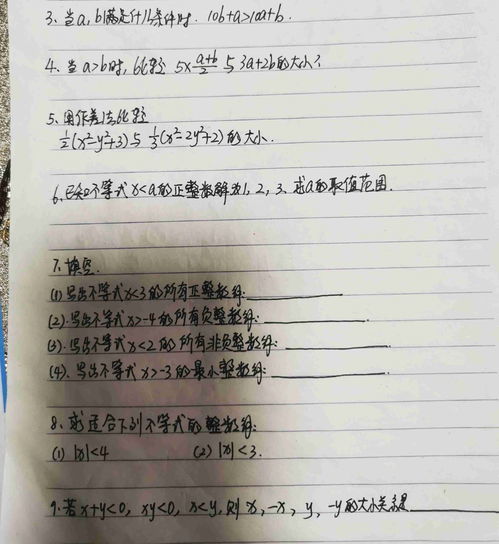 3、当a,b满足什么条件时. 10b+a>10a+b.
4、当a>b时, 比较 5×\frac{a+b}{2} 与 3a+2b的大小?
5、用作差法比较
\frac{1}{2}(x²-y²+3)与 \frac{1}{3}(x²-2y²+2)的大小.
6、已知不等式x<a的正整数解为1, 2, 3、求a的取值范围.
7、填空.
(1)写出不等式x<3的所有正整数解:
(2).写出不等式x>-4的所有负整数解:
(3).写出不等式x<2的所有非负整数解:
(4).写出不等式x>-3的最小整数解:
8、求适合下列不等式的整数解:
(1) |x|<4 (2) |x|<3.
9.若x+y<0, xy<0, x<y, 则 x, -x, y, -y的大小关系是